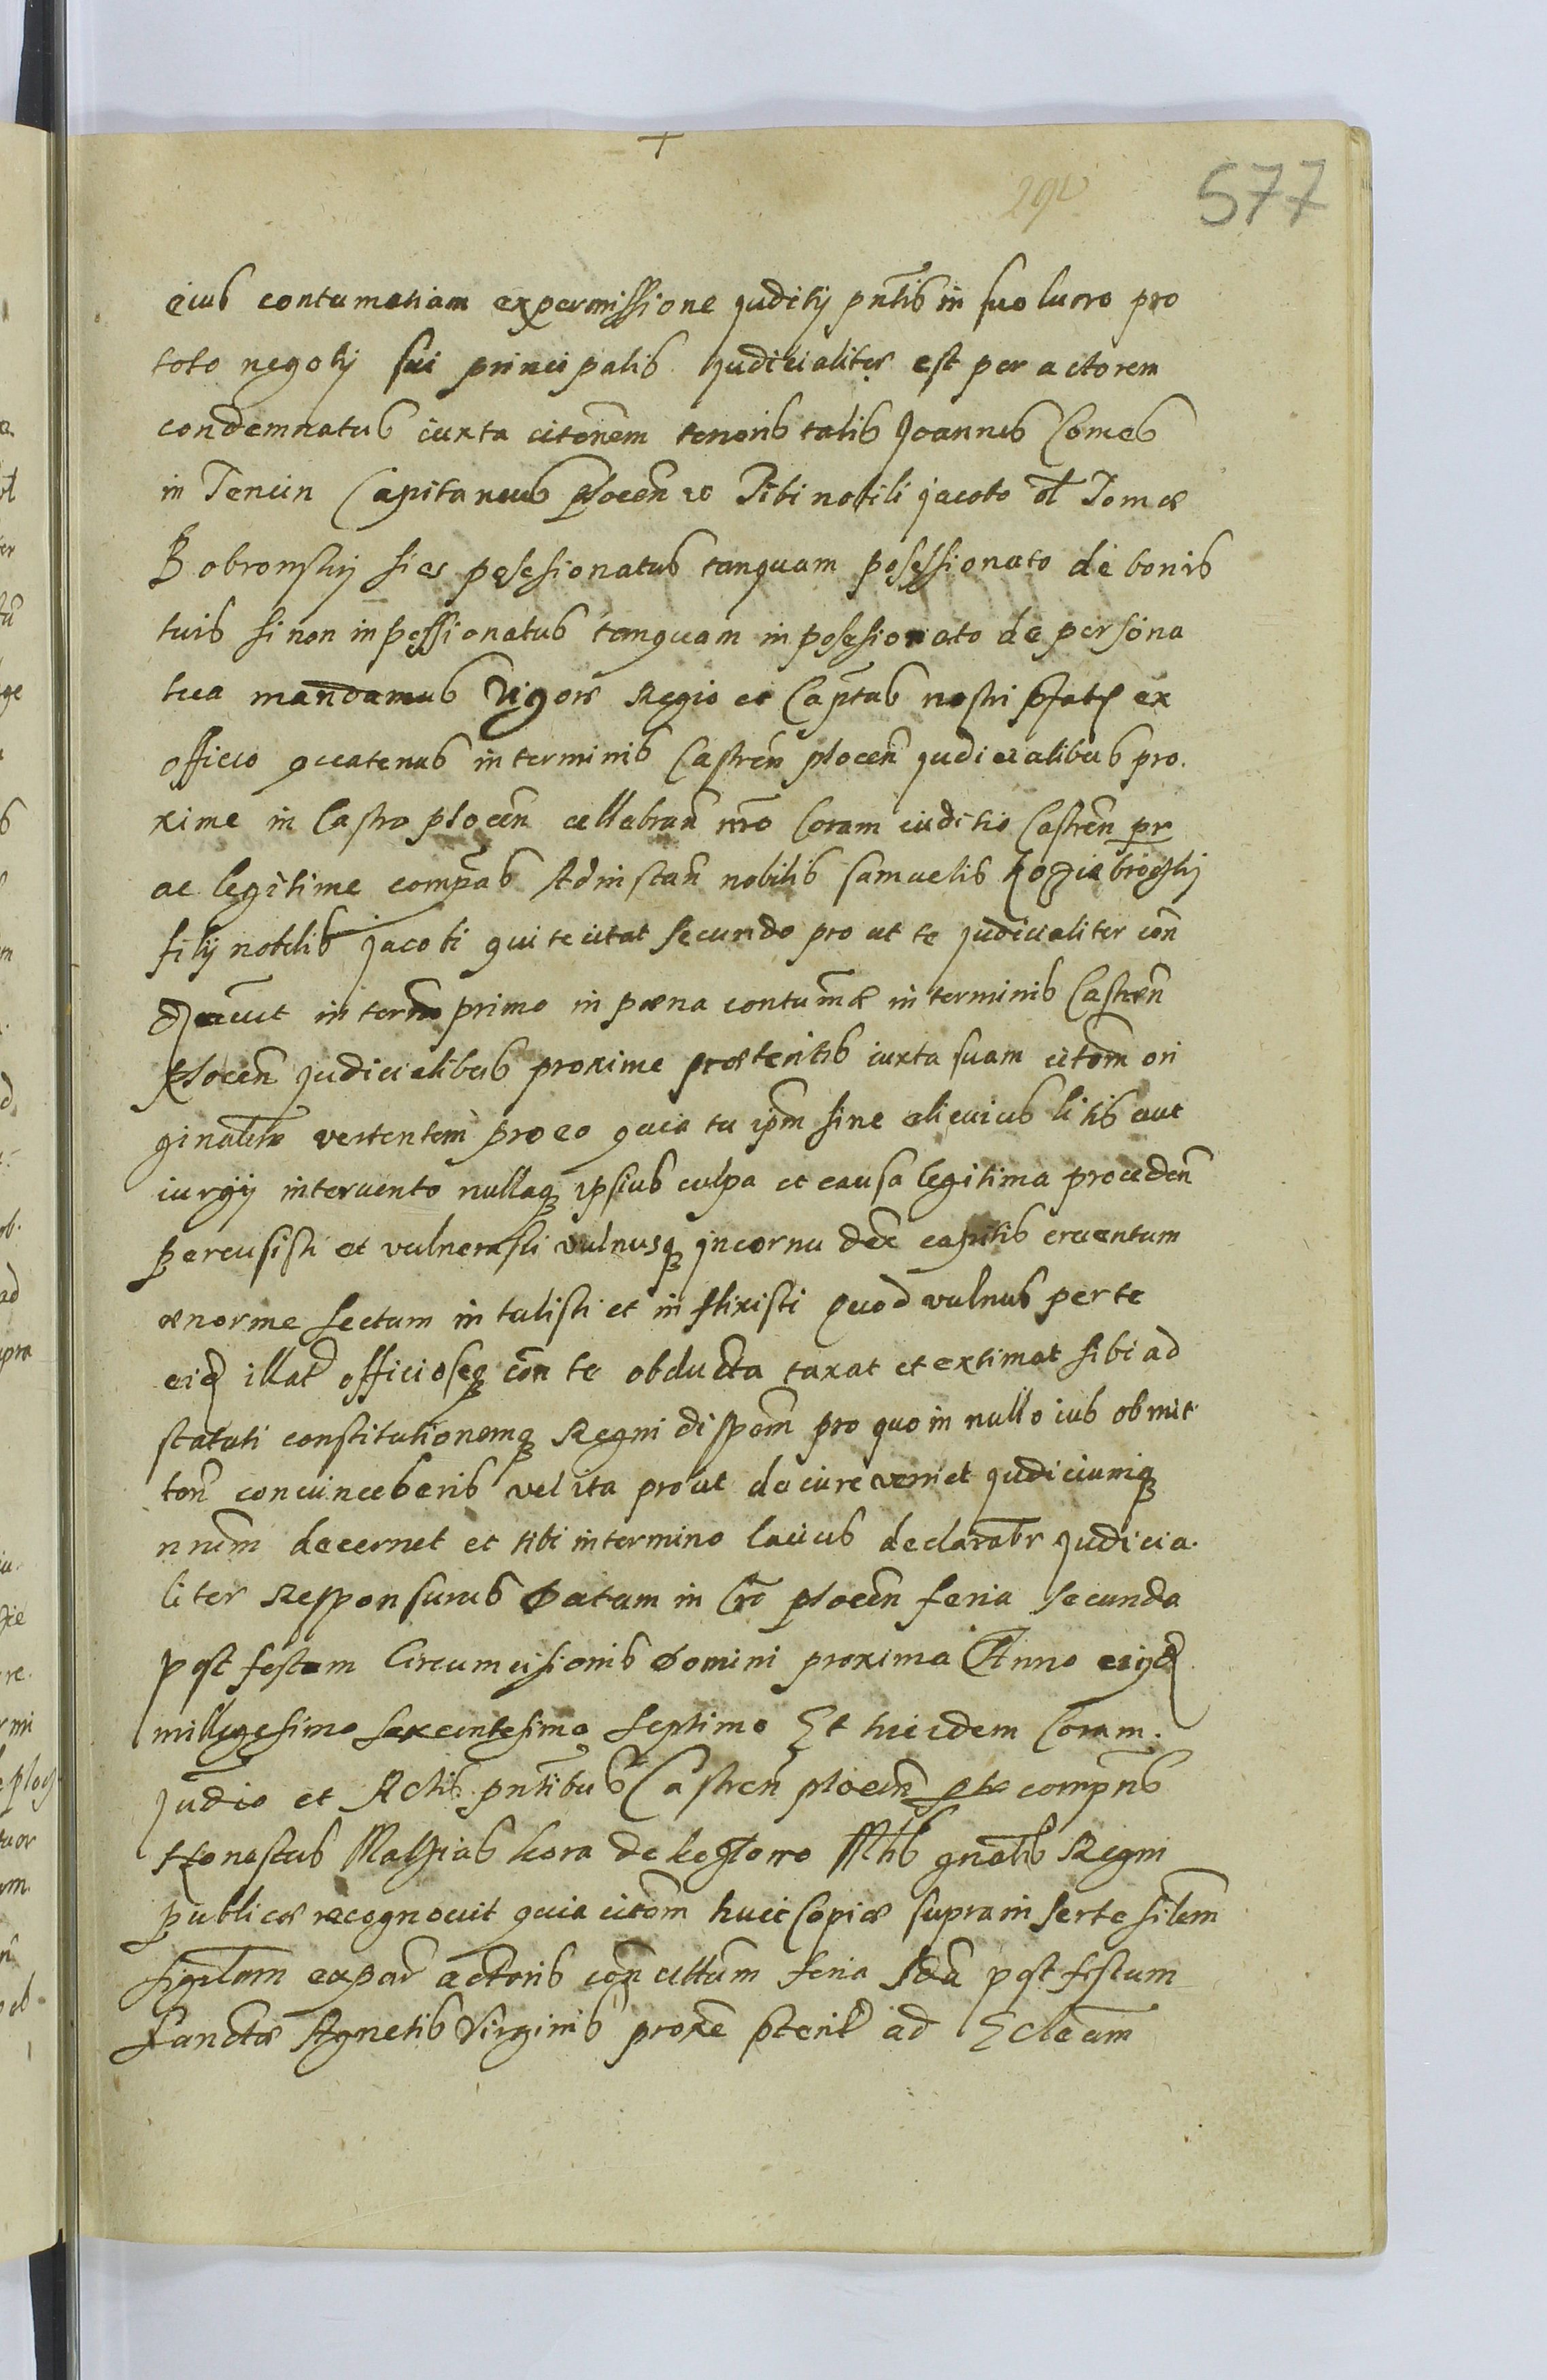 577
eius contumatiam ex permissione Juditij pñtis in suo lucro pro
toto negotij sui principalis Judicialiter est per actorem
condemnatus iuxta citonẽm tenoris talis Joannes Comes
in Tencin Capitaneus plocen̄ Tibi nobili Jacobo ol Tomæ
Bobrowskij si es posesionatus tanquam posessionato de bonis
tuis si non inpossionatus tanquam inposesionato de persona
tua mandamus Vigore Regio et Capitas nostri pfatę ex
officio quatenus in terminis Castren̄ plocen̄ Judicialibus pro
xime in Castro plocen̄ cellebran̄ Coram iuditio Castren̄ pr
ac legitime compas Ad instan̄ nobilis Samuelis Koziebrogskij
filij nobilis Jacobi qui te citat secundo pro ut te Judicialiter con
denauit in termo primo in pæna contumæ in terminis Castren̄
plocen̄ Judicialibus proxime præteritis iuxta suam citonm ori
ginalem vertentem pro eo quia tu ipm sine alicuius litis aut
iurgij intervento nullaq ipsius culpa et causa legitima proceden̄
percusisti et vulnerasti vulnusq in cornu dex capitis cruentum
ænorme sectum intulisti et inflixisti Quod vulnus per te
eid illat officioseq con te obducta taxat et extimat sibi ad
statuti constitutionemq Regni dispom pro quo in nullo ius obmit
ton̄ convinceberis vel ita prout de iure veniet Judiciumq
nrum decernet et tibi in termino latius declarabr Judicia
liter Responsurus Datum in Cro plocen̄ feria secunda
post festum Circumcisionis Domini proxima Anno eiusd
millegesimo sexcentesimo septimo Et huicdem Coram
Judio et Actis pñtibus Castren̄ plocen̄ pte compñs
Honestus Mathias kora de Mtis gnalis Regni
publice recognovit quia citom huic Copiæ supra inserte silem
sigilatam ex par actoris con citatum feria scda post festum
Sanctæ Agnetis Virginis proxe pterit ad Ecleam